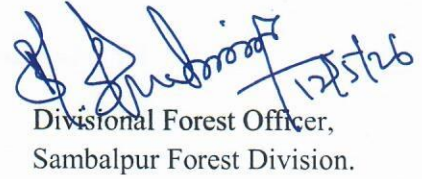 12/5/26
Divisional Forest Officer,
Sambalpur Forest Division.